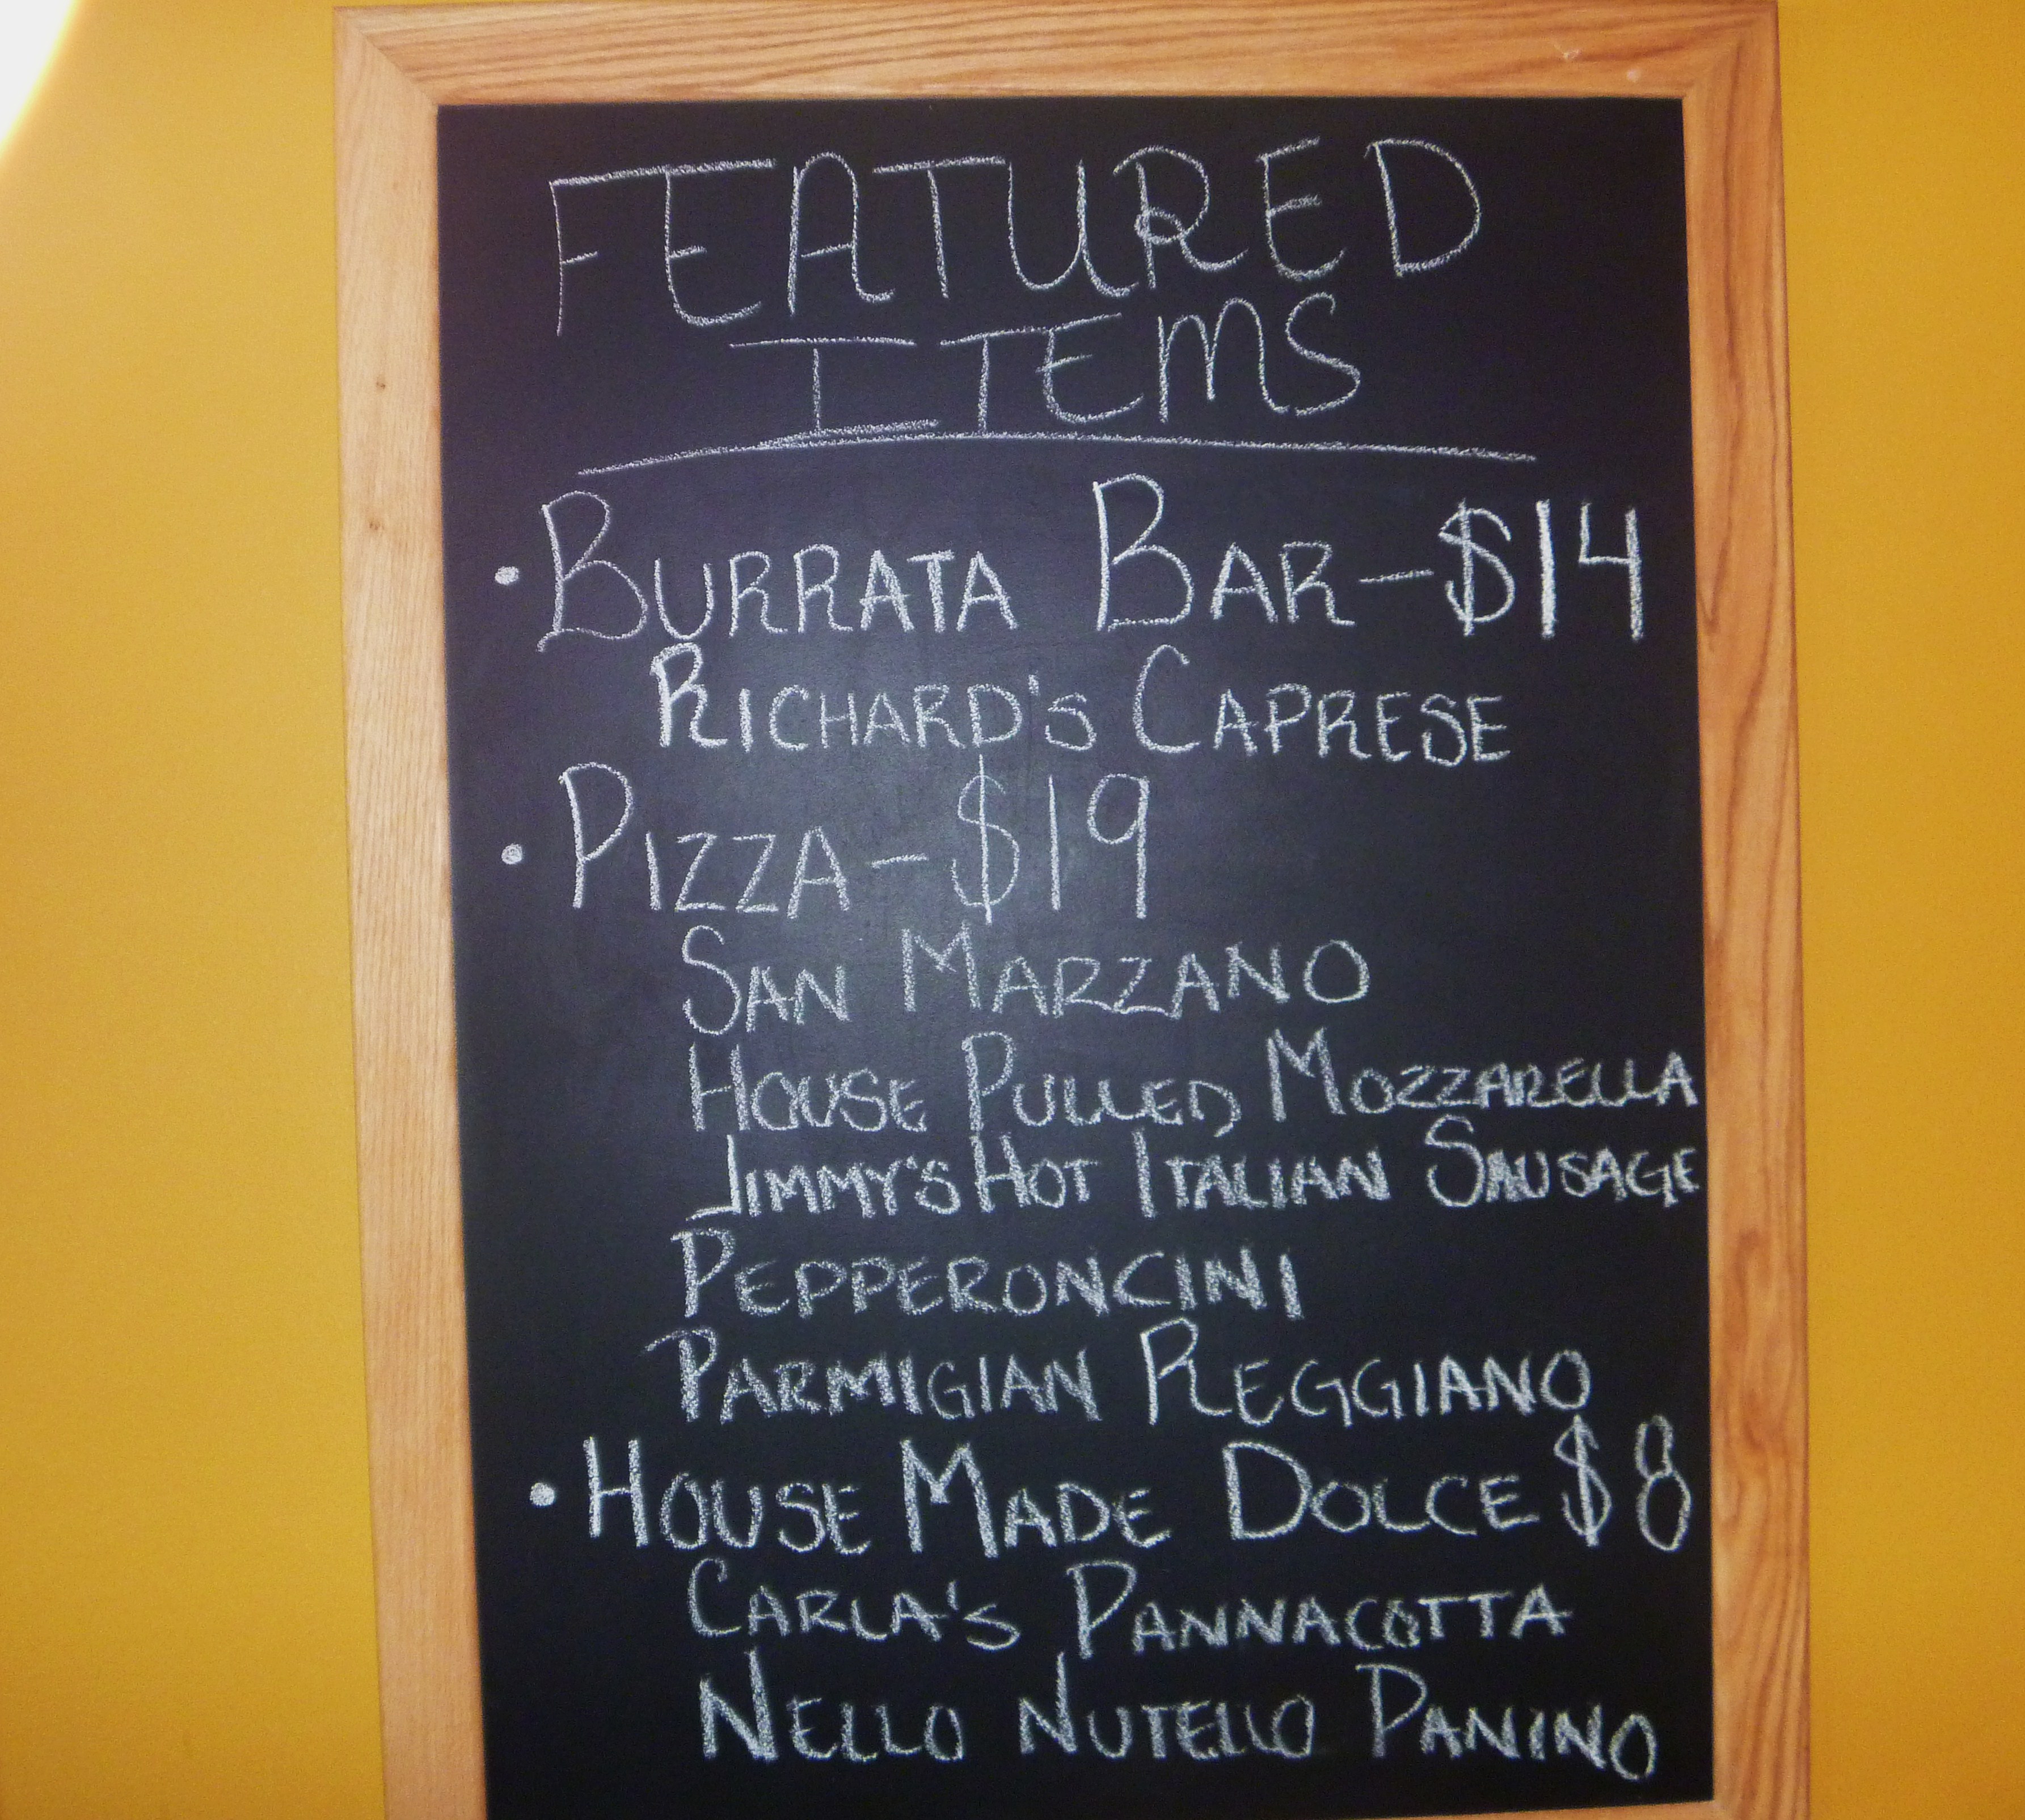 FEATURED
ITEMS
• BURRATA BAR - $14
RICHARD'S CAPRESE
• PIZZA - $19
SAN MARZANO
HOUSE PULLED MOZZARELLA
JIMMY'S HOT ITALIAN SAUSAGE
PEPPERONCINI
PARMIGIAN REGGIANO
• HOUSE MADE DOLCE $8
CARLA'S PANNACOTTA
NELLO NUTELLO PANINO